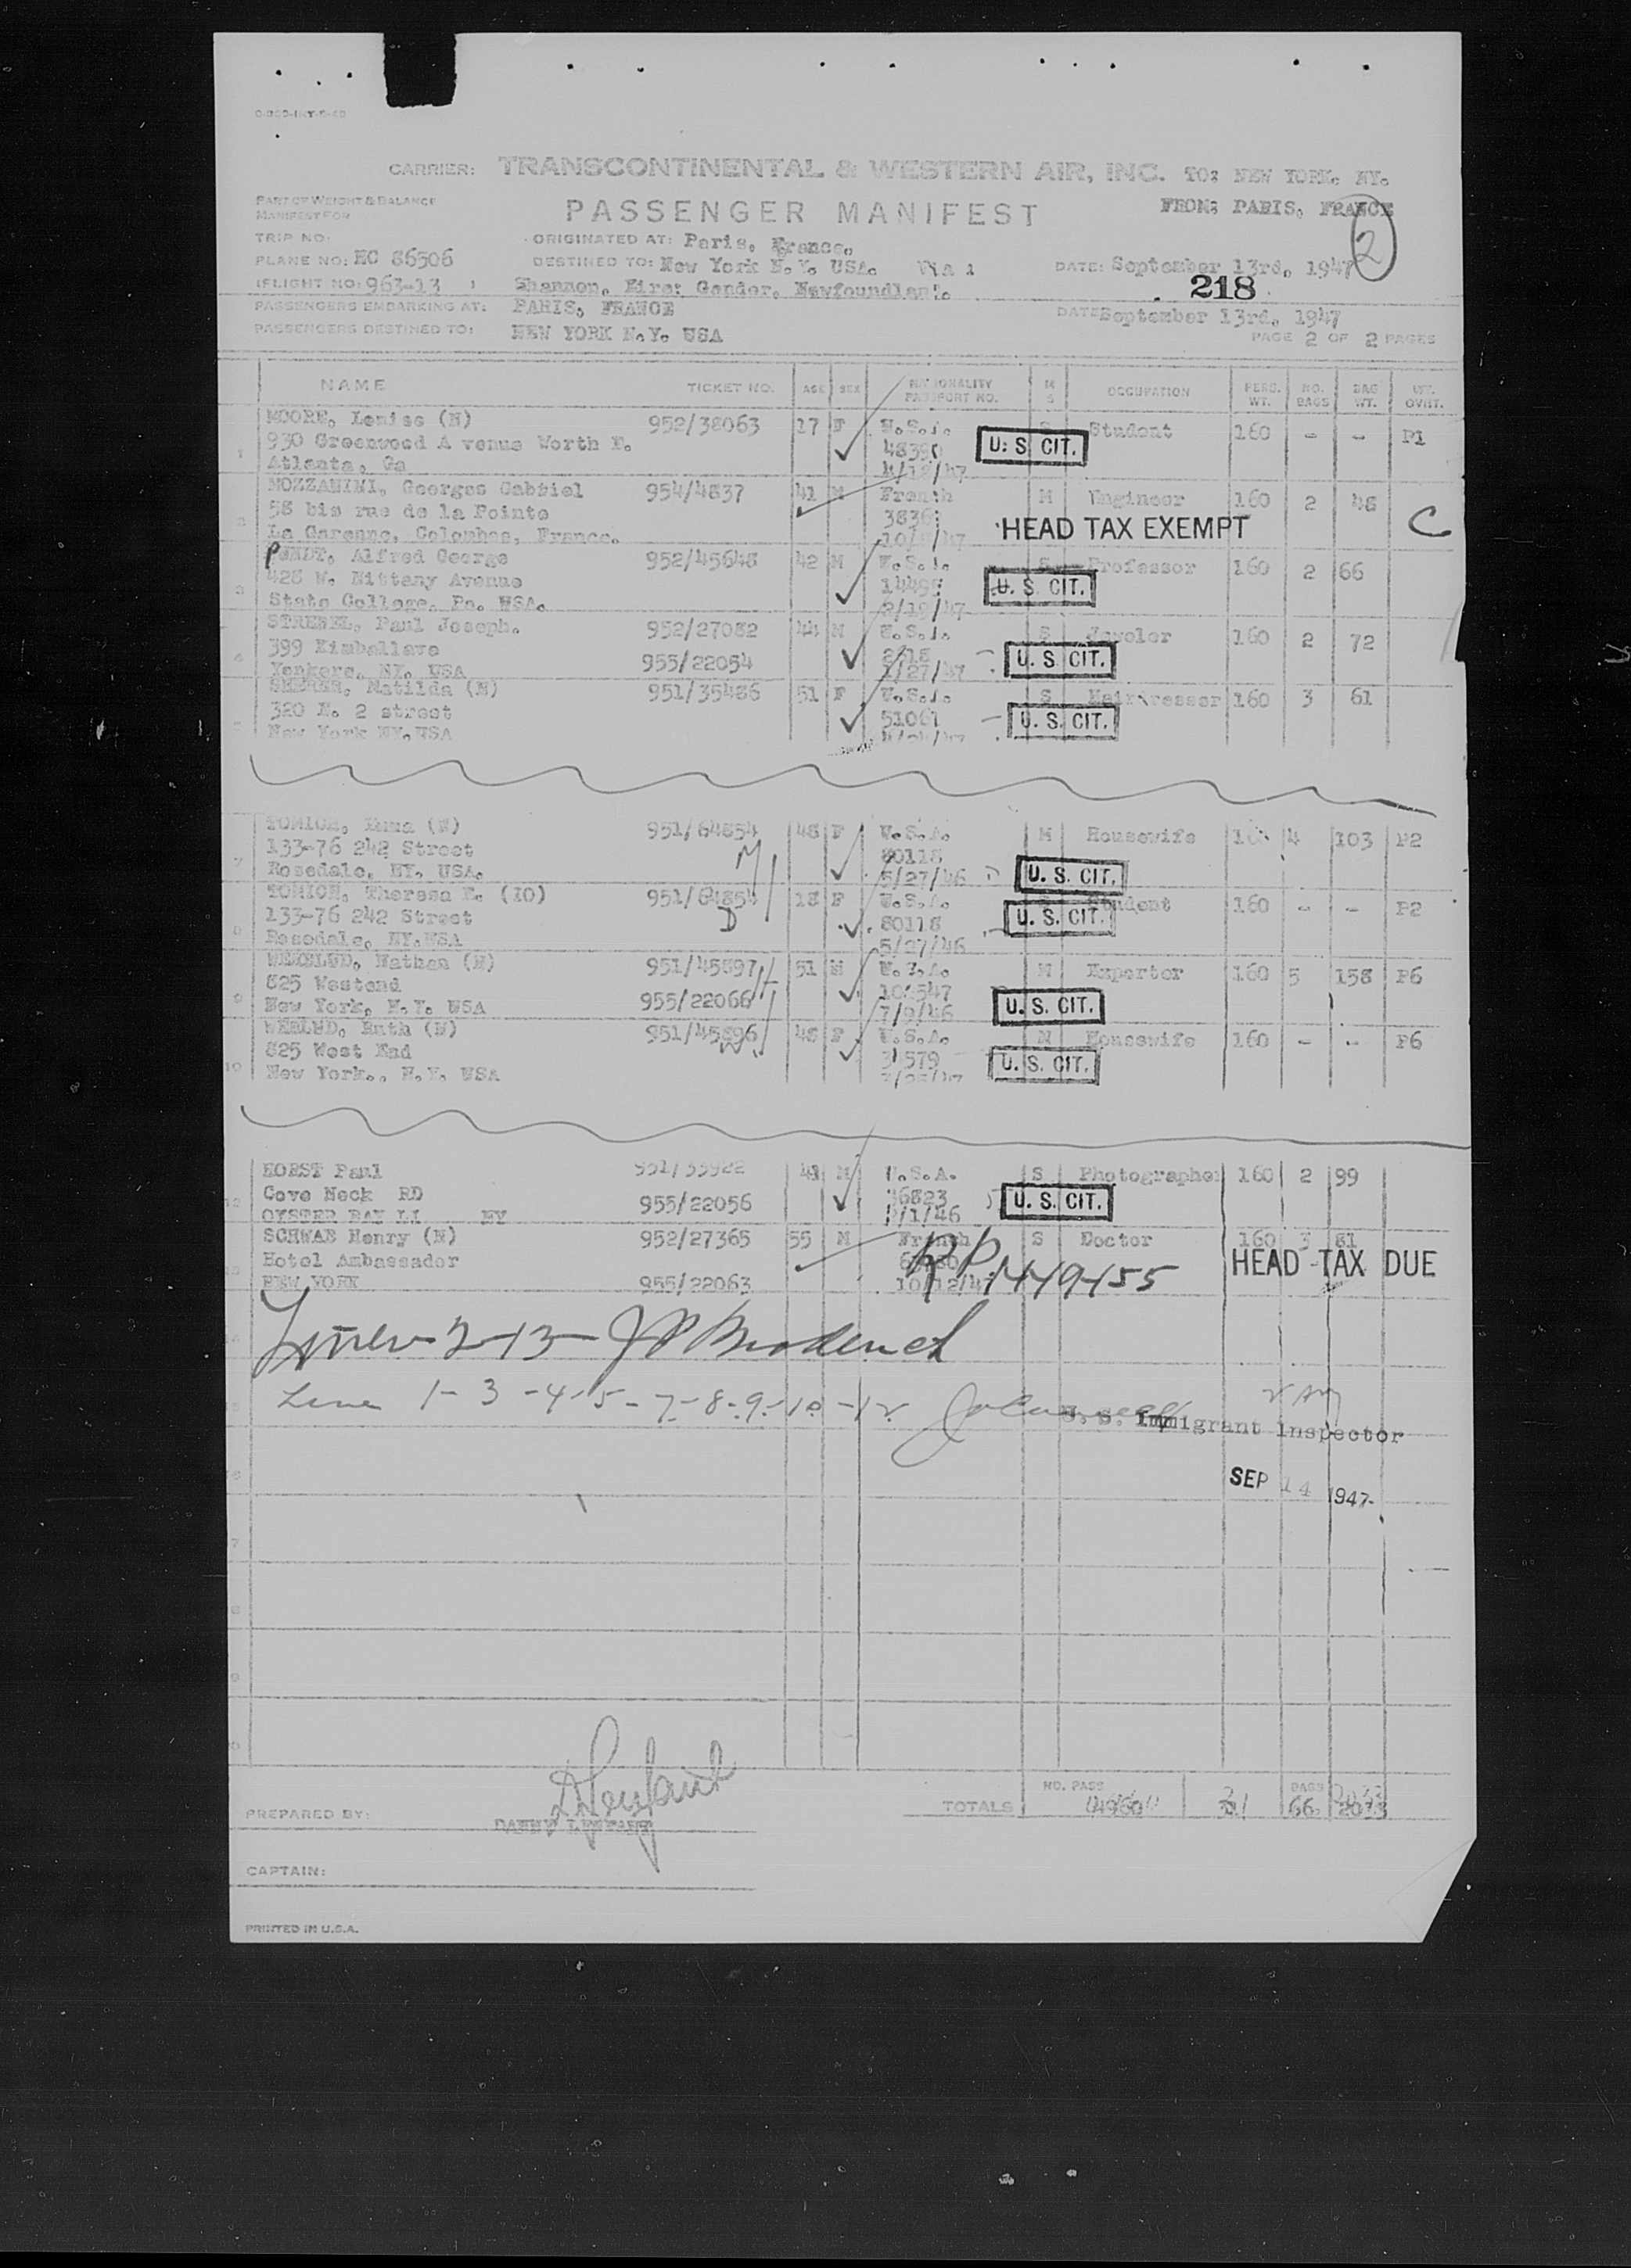 CARRIER: TRANSCONTINENTAL & WESTERN AIR, INC. TO: NEW YORK. NY.
PART OF WEIGHT & BALANCE
MANIFEST FOR
PASSENGER MANIFEST
FROM: PARIS, FRANCE
2
TRIP NO:
ORIGINATED AT: Paris, France,
PLANE NO: NC 86506
DESTINED TO: New York N.Y. USA. Via :
DATE: September 13rd, 1947
(FLIGHT NO: 963-13 )
Shannon, Eire: Gander, Newfoundland.
218
PASSENGERS EMBARKING AT: PARIS, FRANCE
DATE September 13rd, 1947
PASSENGERS DESTINED TO: NEW YORK N.Y. USA
PAGE 2 OF 2 PAGES
NAME TICKET NO. AGE SEX NATIONALITY PASSPORT NO. M S OCCUPATION PERS. WT. NO. BAGS BAG WT. WT. OVWT.
MOORE, Louise (N) 952/38063 17 F U.S.A. S Student 160 - - P1
930 Greenwood A venue Worth E. 48390 U.S. CIT.
1 Atlanta, Ga
MOZZANINI, Georges Gabriel 954/4837 41 M French M Engineer 160 2 48
58 bis rue de la Pointe 3836 HEAD TAX EXEMPT C
2 La Garenne, Colombes, France.
PUNDT, Alfred George 952/45648 42 M U.S.A. S Professor 160 2 66
428 W. Nittany Avenue 14495 U.S. CIT.
3 State College, Pa. USA. 2/19/47
STREBEL, Paul Joseph. 952/27082 44 M U.S.A. S Jeweler 160 2 72
399 Kimballave
4 Yonkers, NY. USA 955/22054 1/27/47 U.S. CIT.
Matilda (N) 951/35486 51 F U.S.A. S Hairdresser 160 3 61
320 E. 2 street 51061 U.S. CIT.
5 New York NY.USA
TOMICH, (N) 951/64854 48 F U.S.A. M Housewife 160 4 103 P2
133-76 242 Street M 80118
7 Rosedale, NY. USA. 5/27/46 U.S. CIT.
TOMICH, Theresa E. (IO) 951/64854 18 F U.S.A. S Student 160 - - P2
133-76 242 Street D 80118 U.S. CIT.
8 Rosedale, NY.USA 5/27/46
Nathan (N) 951/45897 51 M U.S.A. M Exporter 160 5 158 P6
825 Westend H
9 New York, N.Y. USA 955/22066 7/9/46 U.S. CIT.
Ruth (N) 951/45896 48 F U.S.A. M Housewife 160 - - P6
825 West End W U.S. CIT.
10 New York., N.Y. USA
HORST Paul 951/33922 41 M U.S.A. S Photographer 160 2 99
Cove Neck RD 955/22056 U.S. CIT.
12 OYSTER BAY LI NY /1/46
SCHWAB Henry (N) 952/27365 55 M French S Doctor 160 3 81
Hotel Ambassador RP 1449455 HEAD TAX DUE
13 NEW YORK 955/22063 10/12/4
Lines 2-13-
Line 1-3-4-5-7-8-9-10-12
U. S. Immigrant Inspector
SEP 14 1947
TOTALS NO. PASS
PREPARED BY:
CAPTAIN:
PRINTED IN U.S.A.